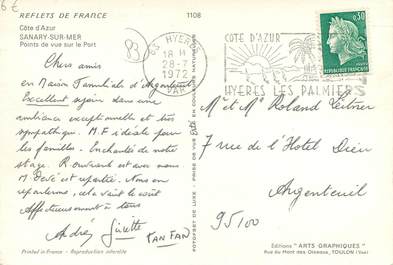 6€
REFLETS DE FRANCE 1108
Côte d'Azur
SANARY-SUR-MER
Points de vue sur le Port
83
83 HYERES
18 H
28-7
1972
VAR
COTE D'AZUR
HYERES LES PALMIERS
0,30
REPUBLIQUE FRANCAISE
Chers amis
en Maison Familiale d'Argenteuil
Excellent séjour dans une
ambiance exceptionnelle et très
sympathique. M.F idéale pour
les familles. Enchantés de notre
stage. R. ouvrant est avec nous
M. est repartie. Nous en
reparlerons, cela vaut le coût
Affectueusement à tous
André Ginette FANFAN
M et Mme Roland Leitner
7 rue de l'Hotel Dieu
Argenteuil
95100
PHOTOFSET DE LUXE - PRISE DE VUE EN COULEURS NATURELLES
Printed in France - Reproduction interdite
Editions "ARTS GRAPHIQUES"
Rue du Mont des Oiseaux, TOULON (Var)